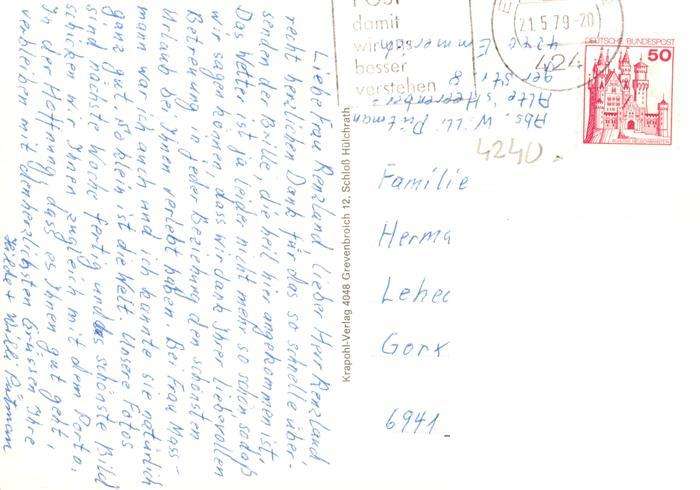 Liebe Frau Renzland, lieber Herr Renzland,
recht herzlichen Dank für das so schnelle über-
senden der Brille, die heil hir angekommen ist.
Das Wetter ist ja leider nicht mehr so schön sodaß
wir sagen können, dass wir dank Ihrer liebevollen
Betreuung in jeder Beziehung den schönsten
Urlaub bei Ihnen verlebt haben. Bei Frau Mass-
mann war ich auch und ich kannte sie natürlich
ganz gut. So klein ist die Welt. Unsere Fotos
sind nächste Woche fertig und das schönste Bild
schicken wir Ihnen zugleich mit dem Porto.
In der Hoffnung, dass es Ihnen gut geht,
verbleiben mit den herzlichsten Grüssen Ihre
Hilde + Willi Pütman
Krapohl-Verlag 4048 Grevenbroich 12, Schloß Hülchrath
POST
damit
wir uns
besser
verstehen
21.5.79-20
424
DEUTSCHE BUNDESPOST
50
Abs. Willi Pütman
Alte
ger str. 8
4240 Emmerich
4240
Familie
Herma
Lehec
Gorx
6941